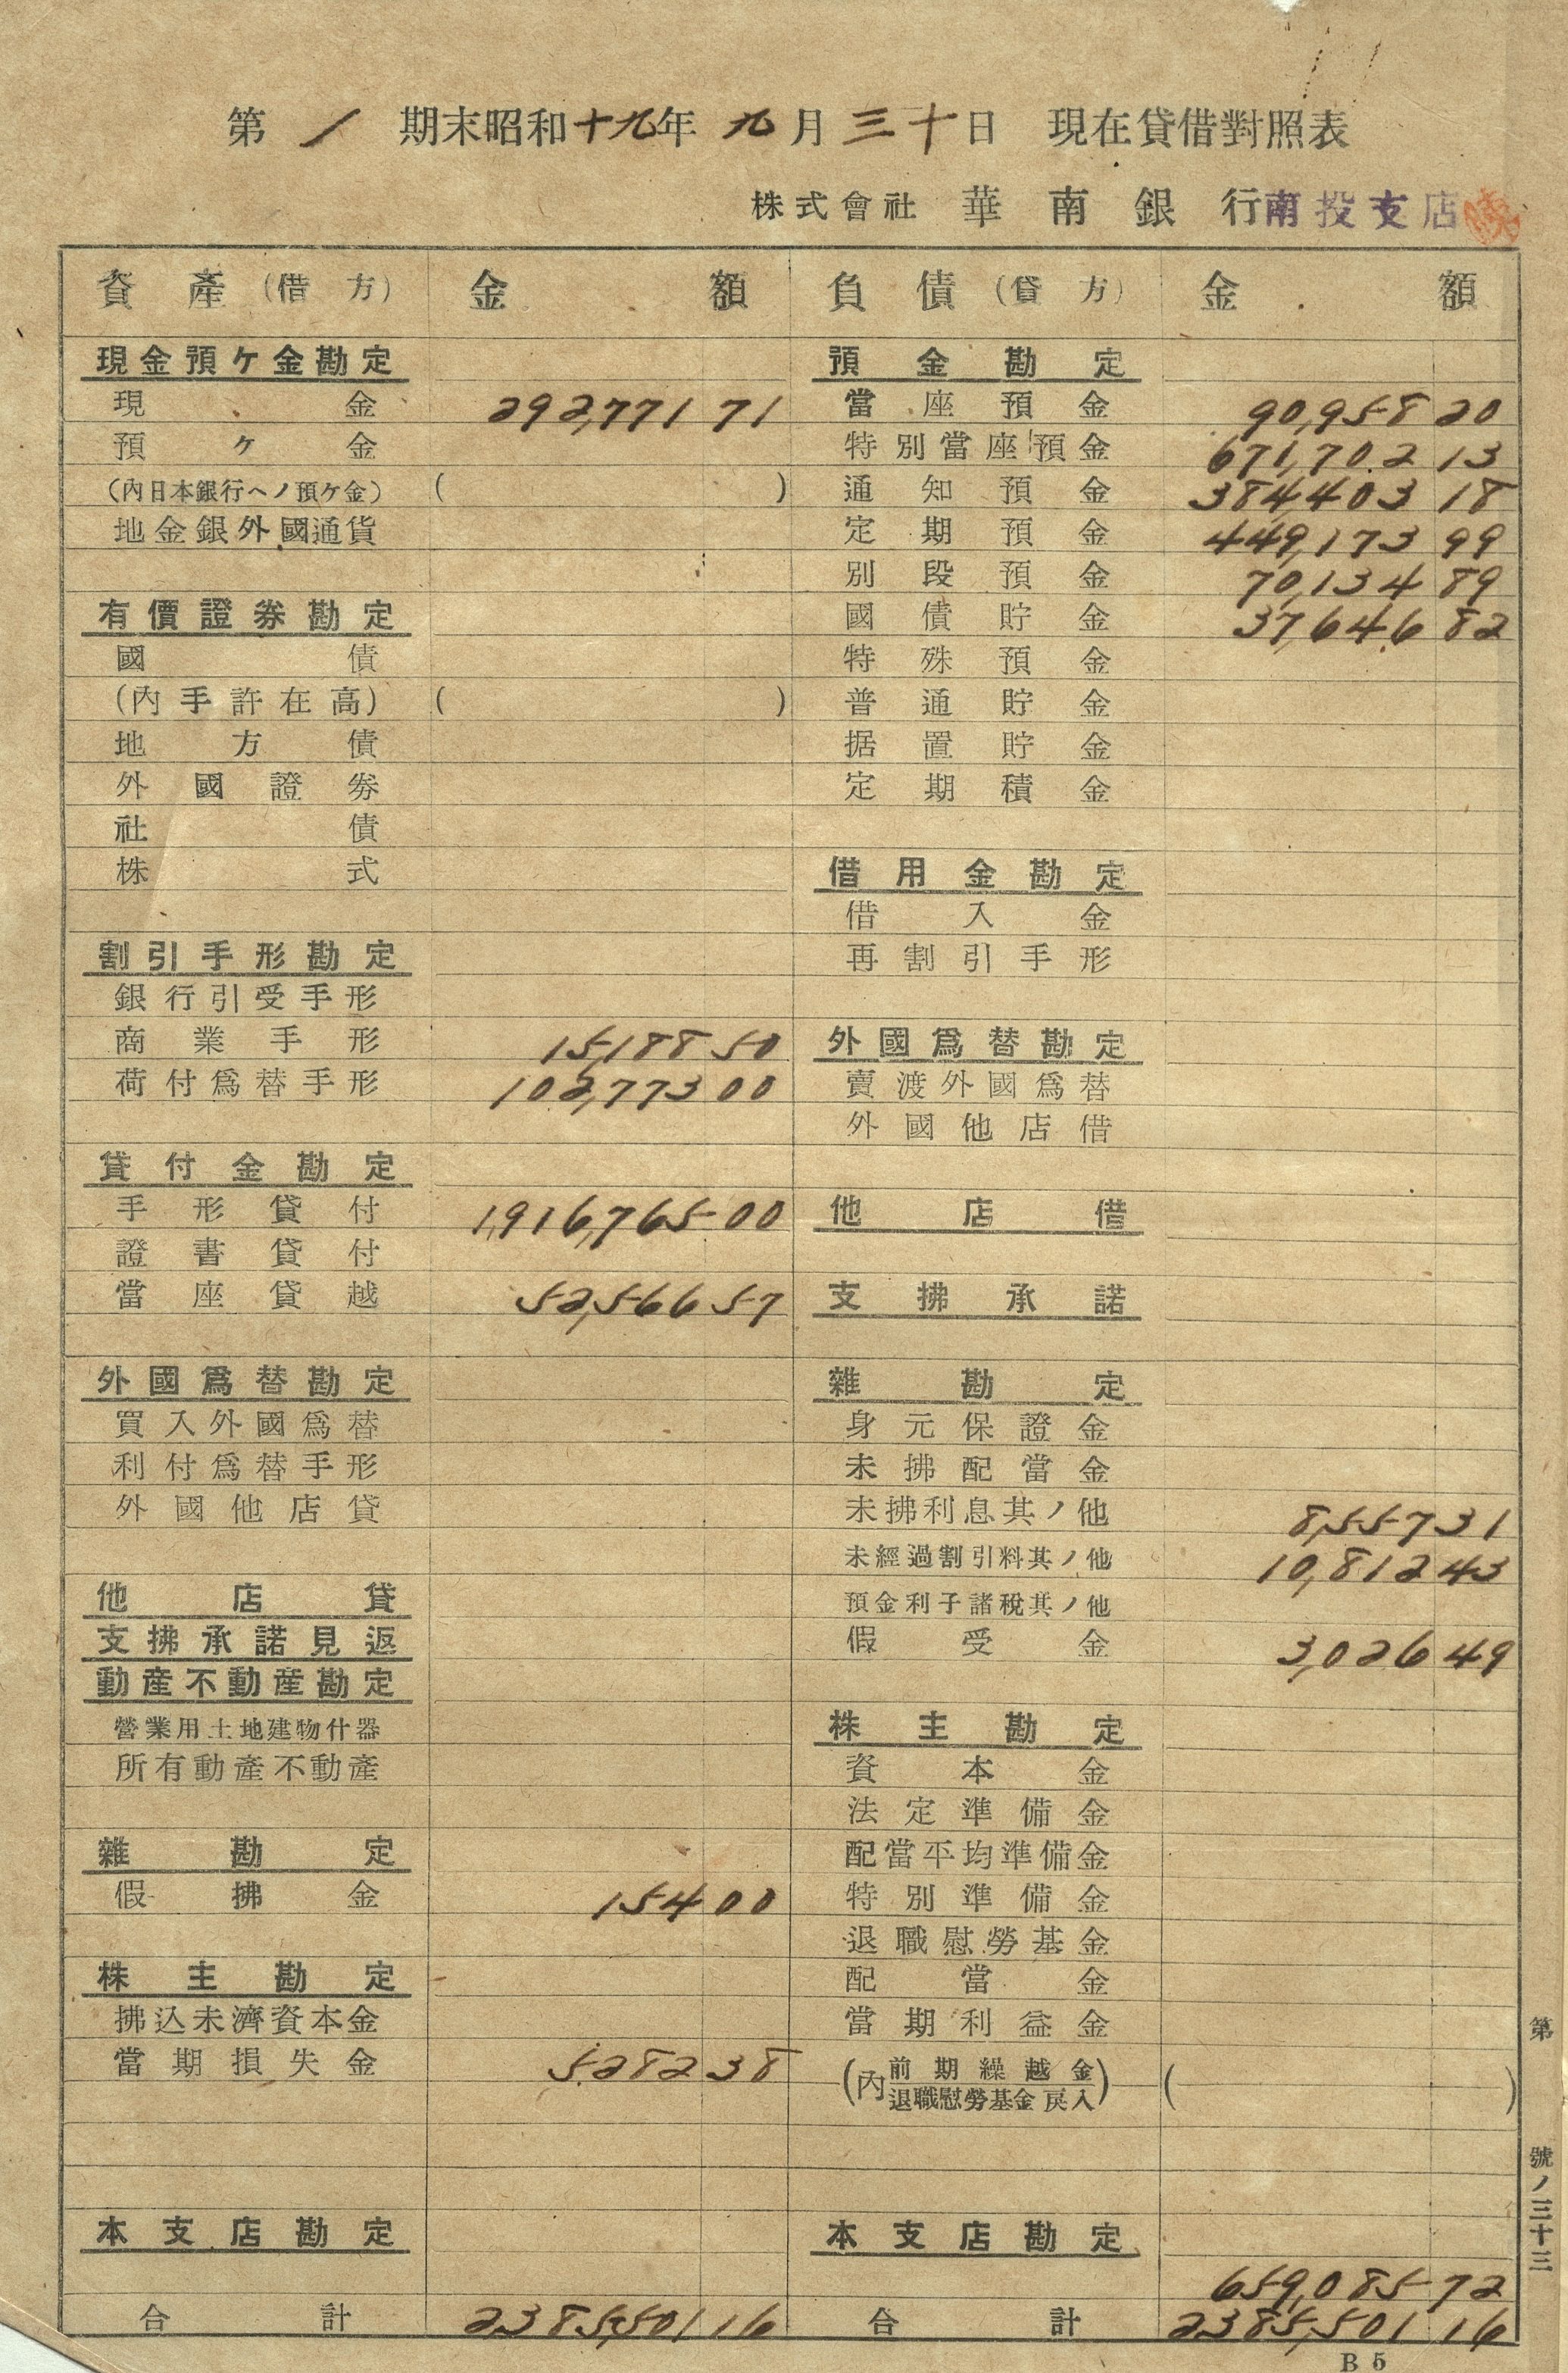 第 1 期末昭和十九年 九月三十日 現在貸借對照表
株式會社 華南銀行南投支店
資產(借方) 金額
現金預ケ金勘定
現金 292,771 71
預ケ金
(內日本銀行ヘノ預ケ金) ( )
地金銀外國通貨
有價證券勘定
國債
(內手許在高) ( )
地方債
外國證券
社債
株式
割引手形勘定
銀行引受手形
商業手形 15,188 50
荷付爲替手形 102,773 00
貸付金勘定
手形貸付 1,916,765 00
證書貸付
當座貸越 52,566 57
外國爲替勘定
買入外國爲替
利付爲替手形
外國他店貸
他店貸
支拂承諾見返
動産不動産勘定
營業用土地建物什器
所有動産不動產
雜勘定
假拂金 154 00
株主勘定
拂込未濟資本金
當期損失金 5,282 38
本支店勘定
合計 2,385,501 16
負債(貸方) 金額
預金勘定
當座預金 90,958 20
特別當座預金 671,702 13
通知預金 384,403 18
定期預金 449,173 99
別段預金 70,134 89
國債貯金 37,646 82
特殊預金
普通貯金
据置貯金
定期積金
借用金勘定
借入金
再割引手形
外國爲替勘定
賣渡外國爲替
外國他店借
他店借
支拂承諾
雜勘定
身元保證金
未拂配當金
未拂利息其ノ他 8,557 31
未經過割引料其ノ他 10,812 43
預金利子諸稅其ノ他
假受金 3,026 49
株主勘定
資本金
法定準備金
配當平均準備金
特別準備金
退職慰勞基金
配當金
當期利益金
(內前期繰越金
退職慰勞基金戾入) ( )
本支店勘定
659,085 72
合計 2,385,501 16
第 號ノ三十三
B5